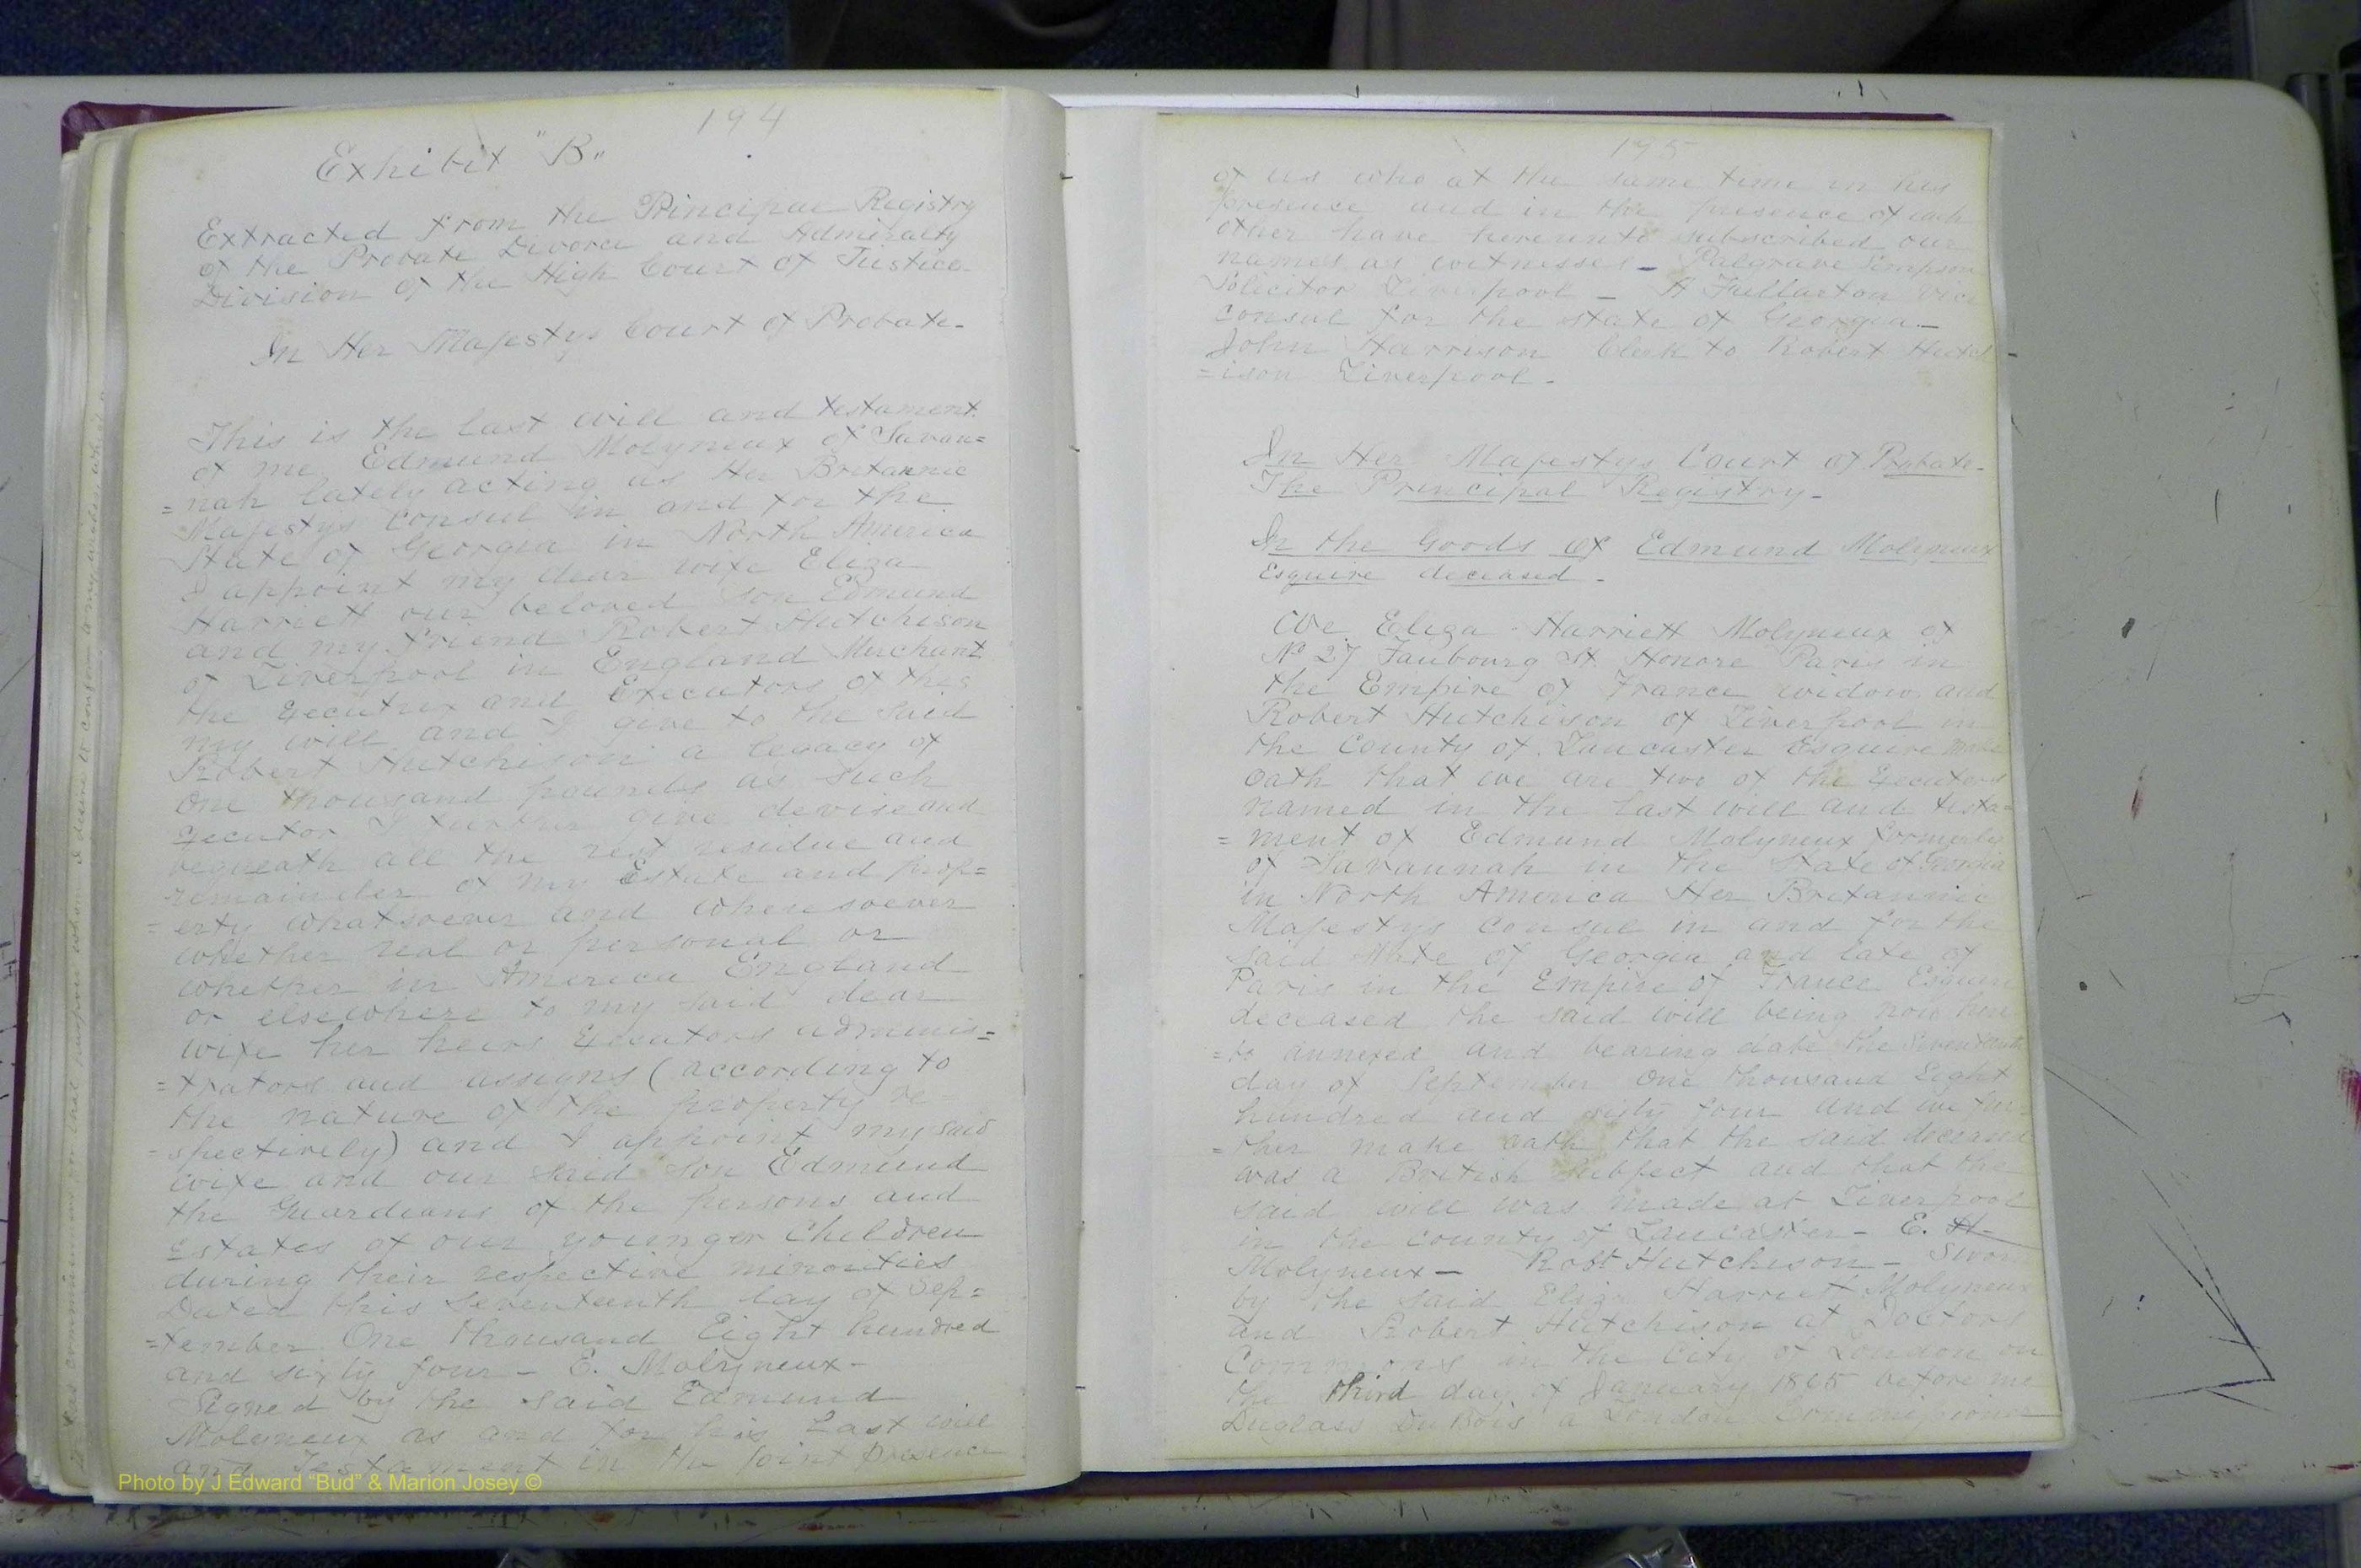 194
Exhibit "B"
Extracted from the Principal Registry
of the Probate Divorce and Admiralty
Division of the High Court of Justice
In Her Majestys Court of Probate.
This is the last will and testament
of me Edmund Molyneux of Savan=
=nah lately acting as Her Britannic
Majestys Consul in and for the
State of Georgia in North America
I appoint my dear wife Eliza
Harriett our beloved son Edmund
and my friend Robert Hutchison
of Liverpool in England Merchant
the Executrix and Executors of this
my will and I give to the said
Robert Hutchison a legacy of
One thousand pounds as such
Executor I further give devise and
bequeath all the rest residue and
remainder of my Estate and prop=
=erty whatsoever and wheresoever
whether real or personal or
whether in America England
or elsewhere to my said dear
wife her heirs Executors adminis=
=trators and assigns (according to
the nature of the property re=
=spectively) and I appoint my said
wife and our said son Edmund
the Guardians of the persons and
Estates of our younger Children
during their respective minorities
Dated this Seventeenth day of Sep=
=tember One thousand Eight hundred
and sixty four - E. Molyneux -
Signed by the said Edmund
Molyneux as and for his Last will
and Testament in the joint presence
195
of us who at the same time in his
presence and in the presence of each
other have hereunto subscribed our
names as witnesses - Palgrave Simpson
Solicitor Liverpool - A Fullarton Vice
consul for the state of Georgia -
John Harrison Clerk to Robert Hutch
=ison Liverpool -
In Her Majestys Court of Probate -
The Principal Registry -
In the Goods of Edmund Molyneux
Esquire deceased -
We Eliza Harriett Molyneux of
No 27 Faubourg St Honore Paris in
the Empire of France widow and
Robert Hutchison of Liverpool in
the County of Lancaster Esquire make
oath that we are two of the Executors
named in the last will and testa=
=ment of Edmund Molyneux formerly
of Savannah in the State of Georgia
in North America Her Britannic
Majestys Consul in and for the
said State of Georgia and late of
Paris in the Empire of France Esquire
deceased the said will being now here
=to annexed and bearing date the Seventeenth
day of September One thousand Eight
hundred and sixty four and we fur=
=ther make oath that the said deceased
was a British Subject and that the
said will was made at Liverpool
in the County of Lancaster - E. H.
Molyneux - Robt Hutchison - Sworn
by the said Eliza Harriett Molyneux
and Robert Hutchison at Doctors
Commons in the City of London on
the third day of January 1865 before me
Duglass DuBois a London Commissioner
Photo by J Edward "Bud" & Marion Josey ©